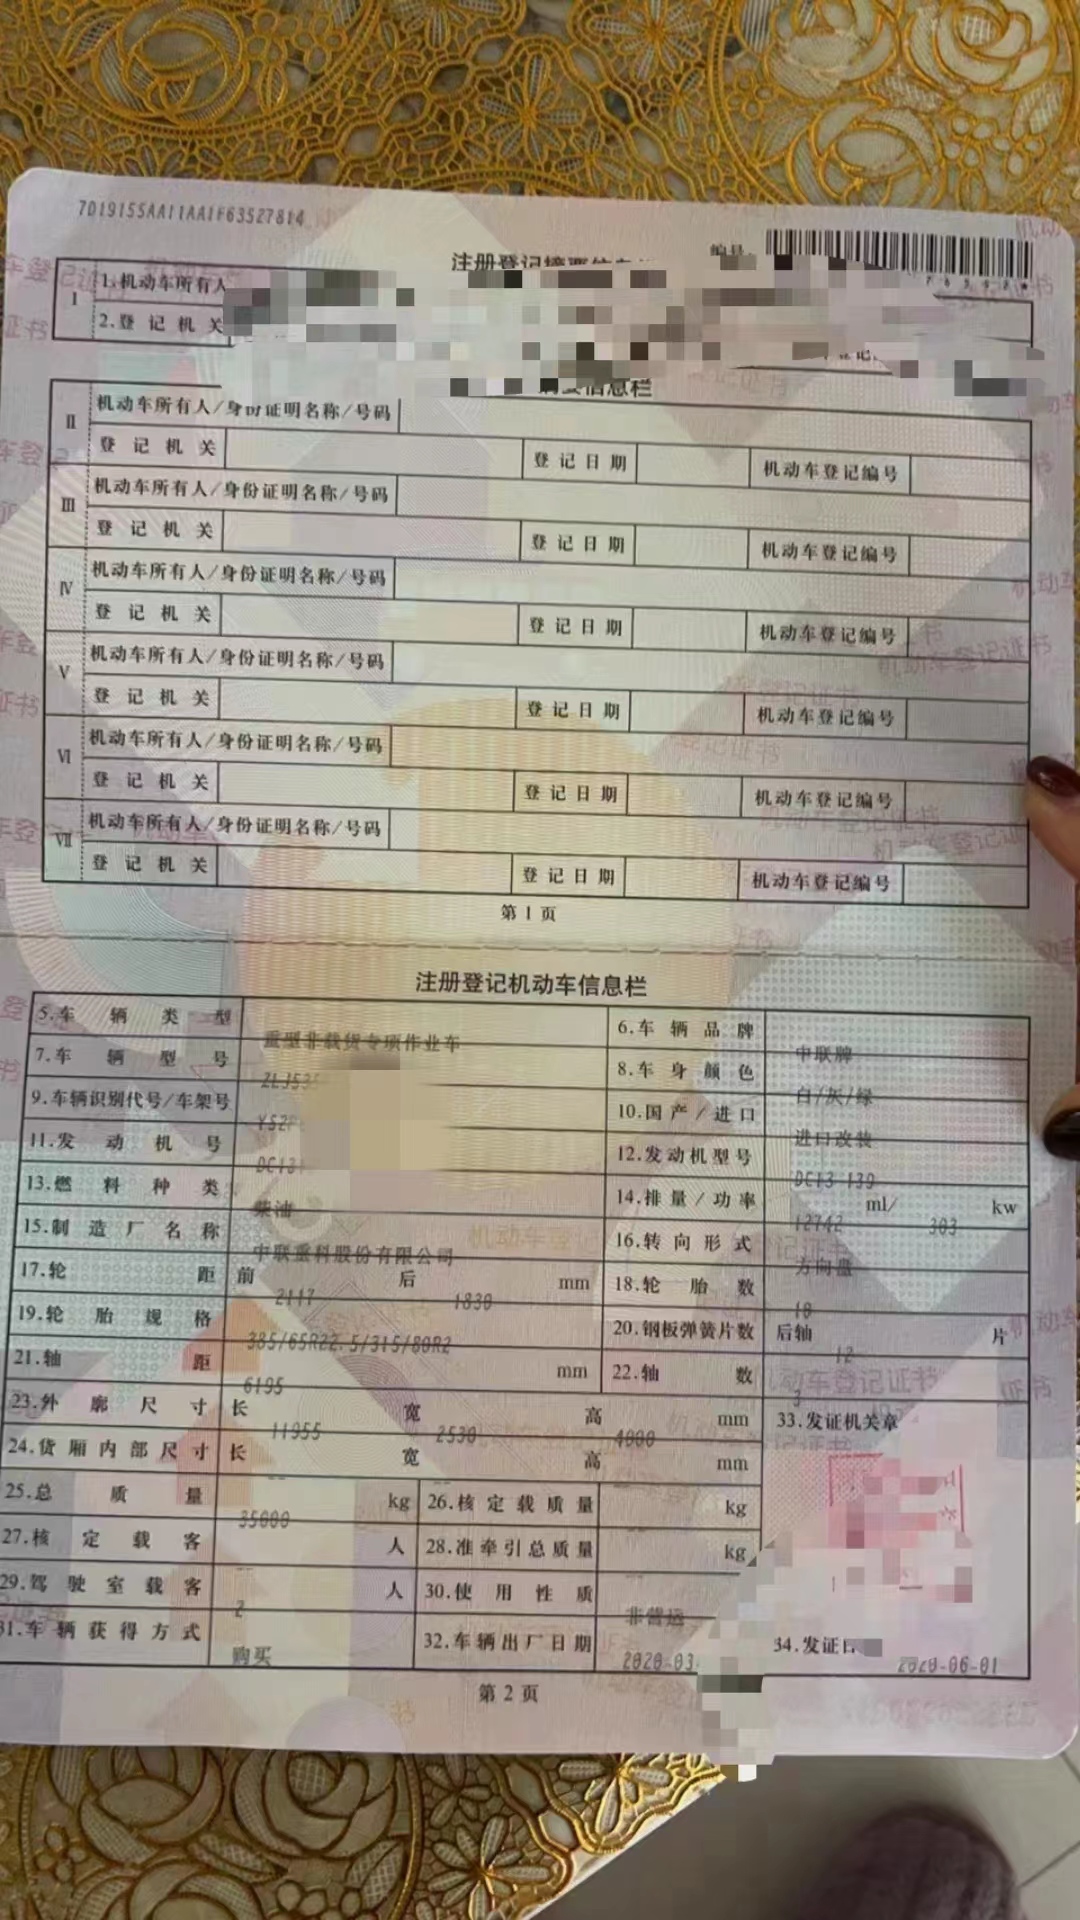 7D19155AA11AA1F63527814
编号
注册登记摘要信息栏
Ⅰ 1.机动车所有人
2.登记机关
Ⅱ 机动车所有人/身份证明名称/号码
登记机关 登记日期 机动车登记编号
Ⅲ 机动车所有人/身份证明名称/号码
登记机关 登记日期 机动车登记编号
Ⅳ 机动车所有人/身份证明名称/号码
登记机关 登记日期 机动车登记编号
Ⅴ 机动车所有人/身份证明名称/号码
登记机关 登记日期 机动车登记编号
Ⅵ 机动车所有人/身份证明名称/号码
登记机关 登记日期 机动车登记编号
Ⅶ 机动车所有人/身份证明名称/号码
登记机关 登记日期 机动车登记编号
第1页
注册登记机动车信息栏
5.车辆类型 重型非载货专项作业车 6.车辆品牌 中联牌
7.车辆型号 ZLJ535 8.车身颜色 白/灰/绿
9.车辆识别代号/车架号 YS2P 10.国产/进口 进口改装
11.发动机号 DC131 12.发动机型号 DC13 139
13.燃料种类 柴油 14.排量/功率 12742 ml/ 303 kw
15.制造厂名称 中联重科股份有限公司 16.转向形式 方向盘
17.轮距 前 2117 后 1830 mm 18.轮胎数 10
19.轮胎规格 385/65R22.5/315/80R2 20.钢板弹簧片数 后轴 12 片
21.轴距 6195 mm 22.轴数 3
23.外廓尺寸 长 11955 宽 2530 高 4000 mm 33.发证机关章
24.货厢内部尺寸 长 -- 宽 -- 高 -- mm
25.总质量 35000 kg 26.核定载质量 -- kg
27.核定载客 -- 人 28.准牵引总质量 -- kg
29.驾驶室载客 2 人 30.使用性质 非营运
31.车辆获得方式 购买 32.车辆出厂日期 2020-03- 34.发证日 2020-06-01
第2页